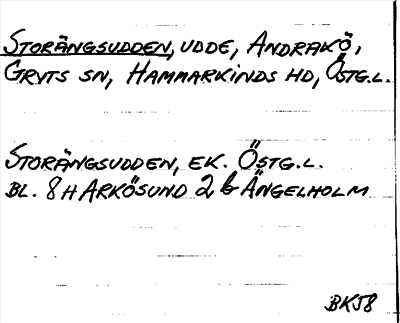 STORÄNGSUDDEN, UDDE, ANDRAKÖ,
GRYTS SN, HAMMARKINDS HD, ÖSTG.L.
STORÄNGSUDDEN, EK. ÖSTG.L.
BL. 8H ARKÖSUND 2 b ÄNGELHOLM
BKS8